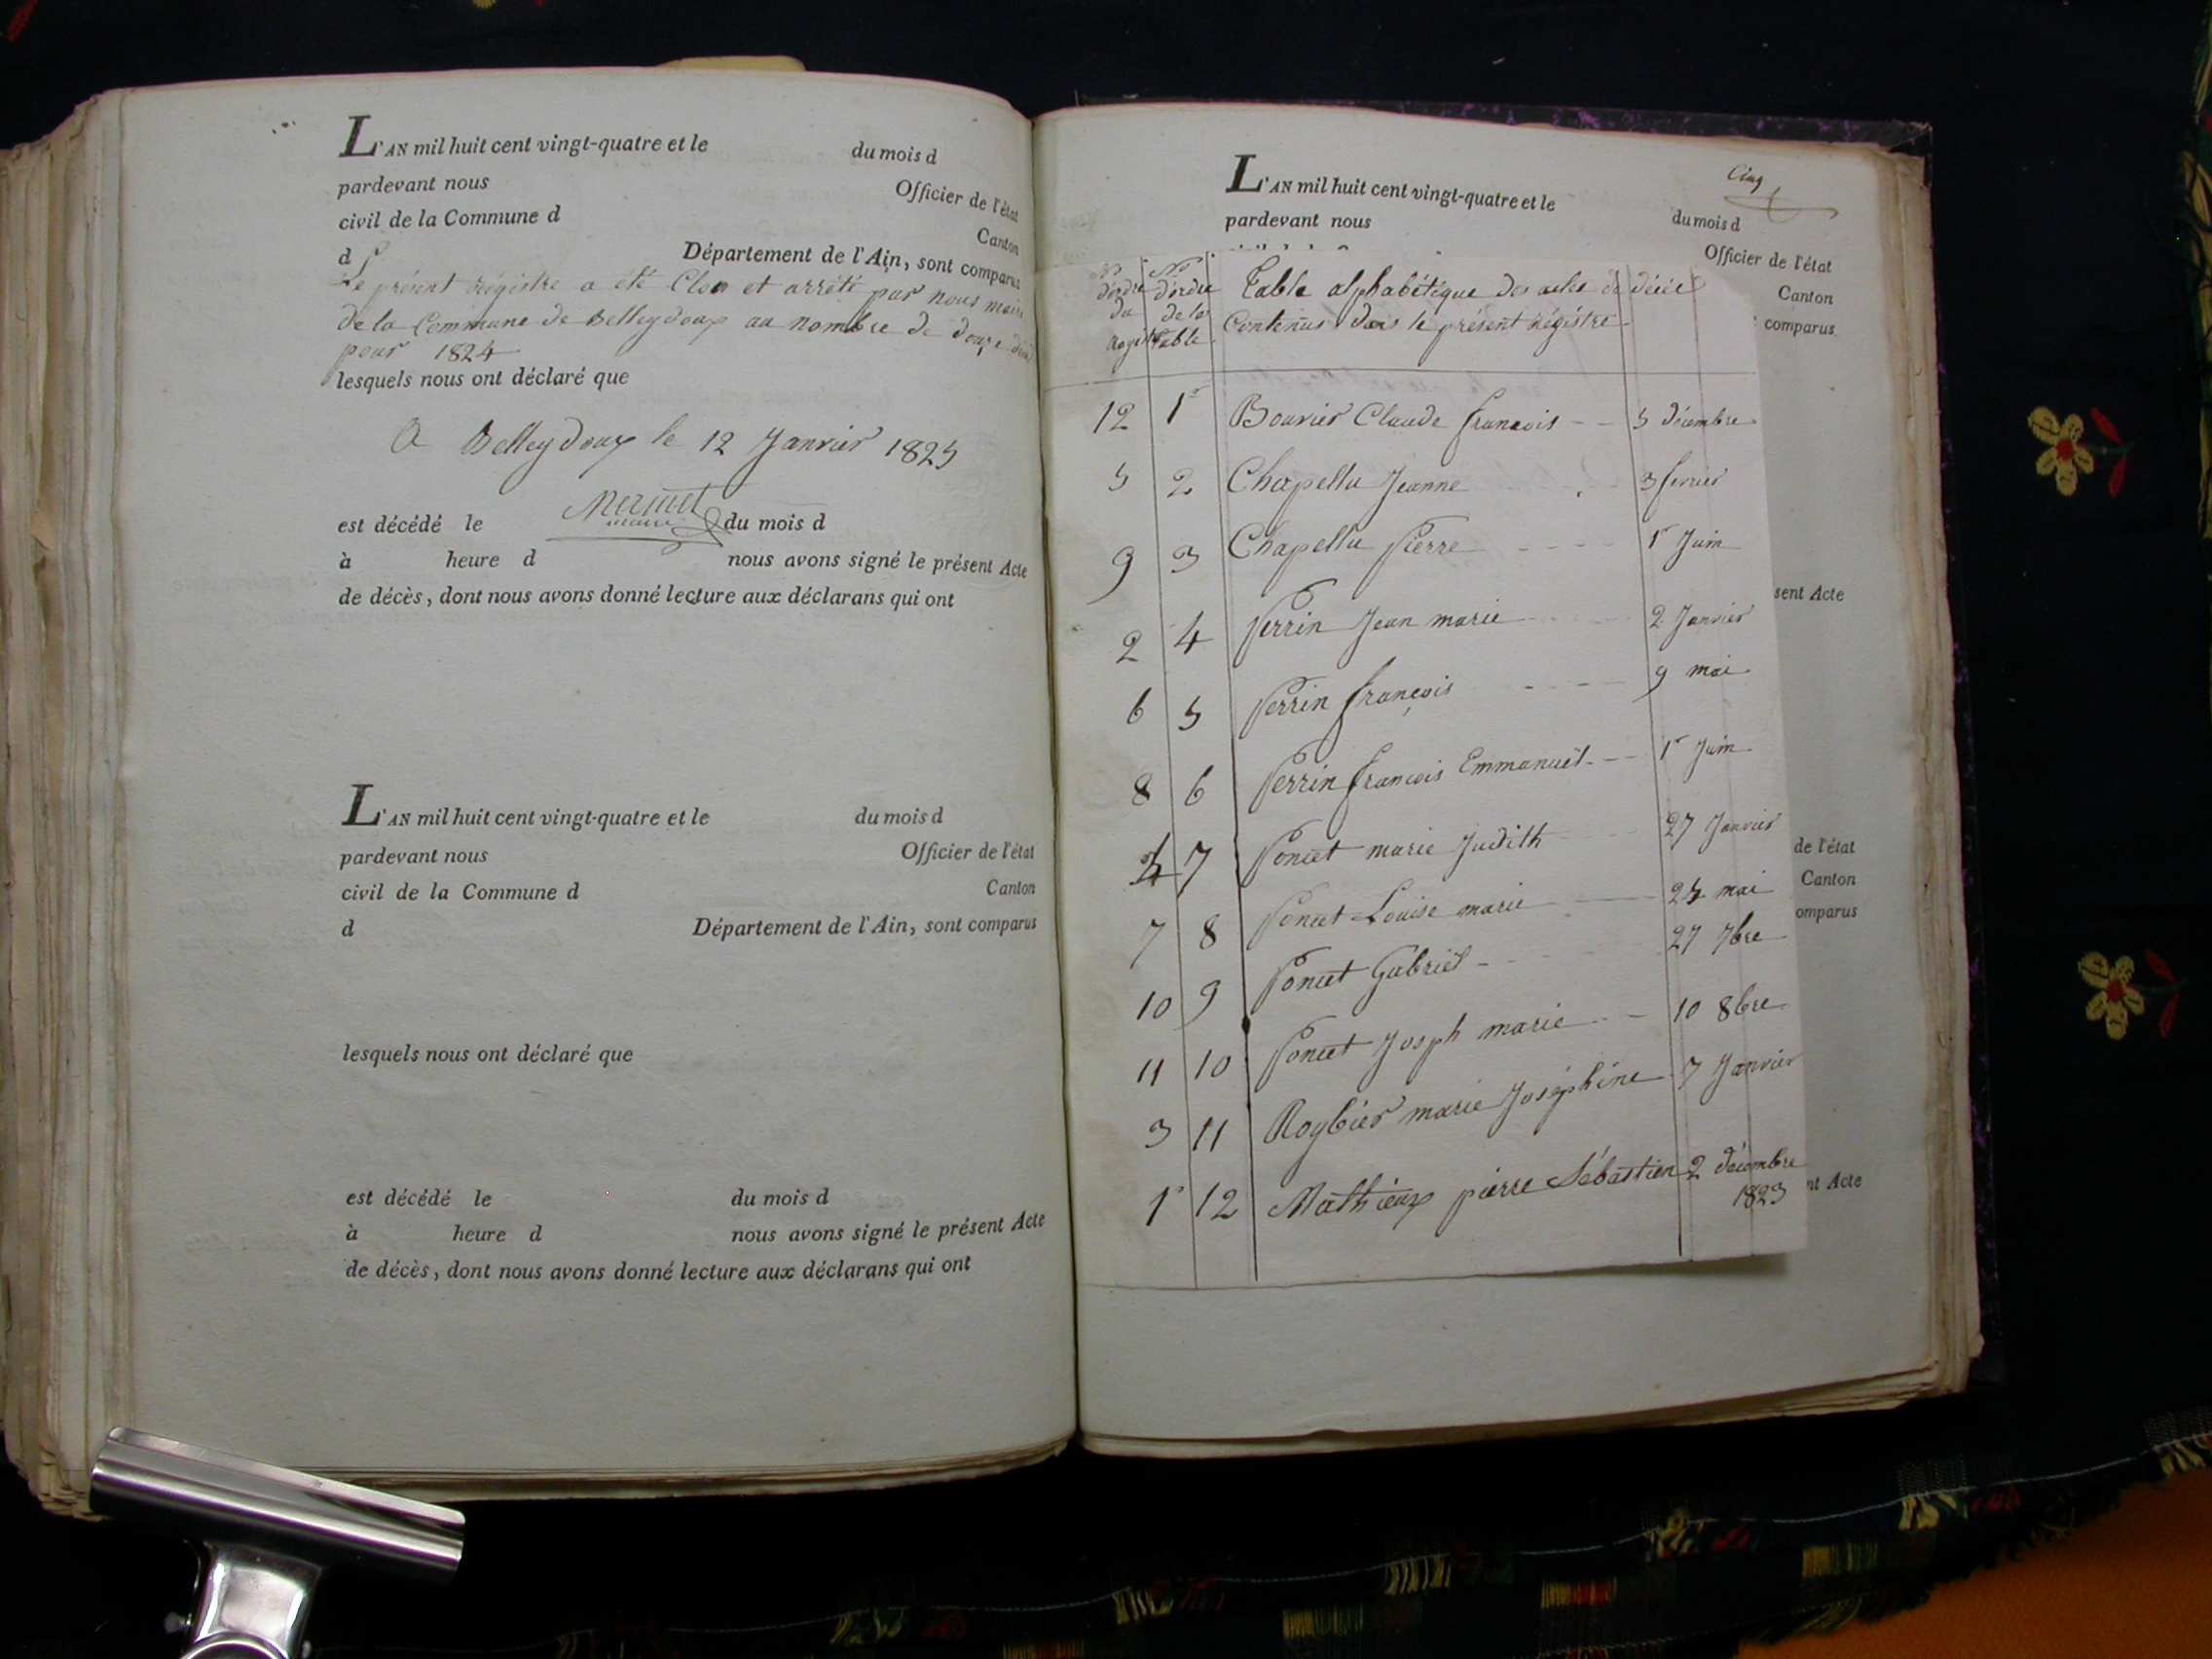 L'AN mil huit cent vingt-quatre et le du mois d
pardevant nous Officier de l'état
civil de la Commune d Canton
d Département de l'Ain, sont comparus
Le présent régistre a été Clos et arrêté par nous maire
de la Commune de Belleydoux au nombre de douze
pour 1824
lesquels nous ont déclaré que
A Belleydoux le 12 Janvier 1825
Mermet
maire
est décédé le du mois d
à heure d nous avons signé le présent Acte
de décès, dont nous avons donné lecture aux déclarans qui ont
L'AN mil huit cent vingt-quatre et le du mois d
pardevant nous Officier de l'état
civil de la Commune d Canton
d Département de l'Ain, sont comparus
lesquels nous ont déclaré que
est décédé le du mois d
à heure d nous avons signé le présent Acte
de décès, dont nous avons donné lecture aux déclarans qui ont
Cinq
L'AN mil huit cent vingt-quatre et le du mois d
pardevant nous Officier de l'état
Canton
comparus
No d'ordre du No d'ordre de la Table
Table alphabétique des actes de décès
Contenus dans le présent régistre
12 1r Bouvier Claude françois 5 décembre
5 2 Chapellu Jeanne 3 fevrier
9 3 Chapellu Pierre 1r Juin
2 4 Perrin Jean marie 2 Janvier
6 5 Perrin françois 9 mai
8 6 Perrin francois Emmanuël 1r Juin
4 7 Poncet marie Judith 27 Janvier
7 8 Poncet Louise marie 25 mai
10 9 Poncet Gabriël 27 7bre
11 10 Poncet Josph marie 10 8bre
3 11 Roybier marie Joséphine 7 Janvier
1r 12 Mathieux pierre Sébastien 2 décembre
1823
sent Acte
de l'état
Canton
omparus
nt Acte